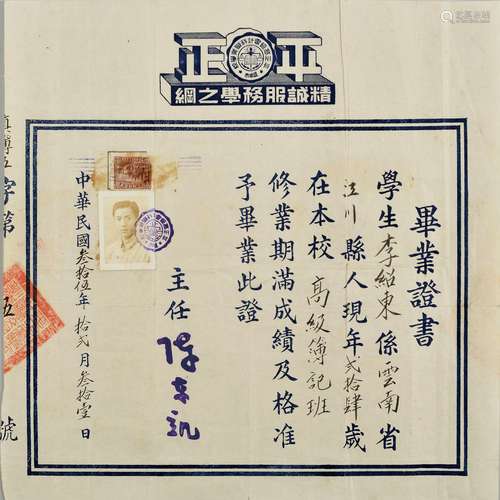 平正
精誠服務學之網
畢業證書
學生李紹東係雲南省
江川縣人現年貳拾肆歲
在本校高級簿記班
修業期滿成績及格准
予畢業此證
主任
中華民國叁拾伍年拾貳月叁拾壹日
字第伍號